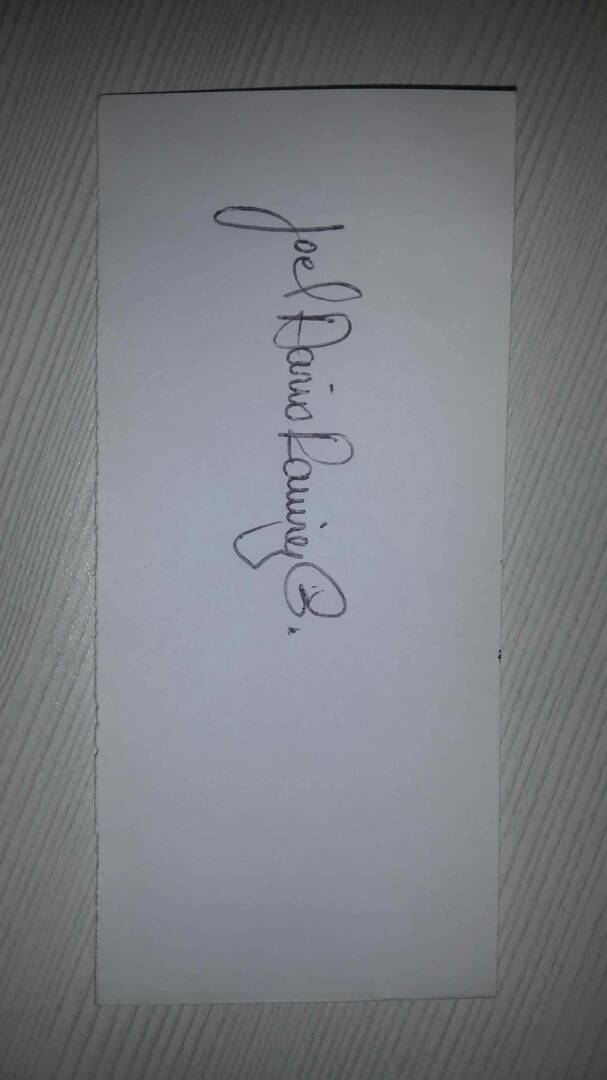 Joel Dario Ramirez B.